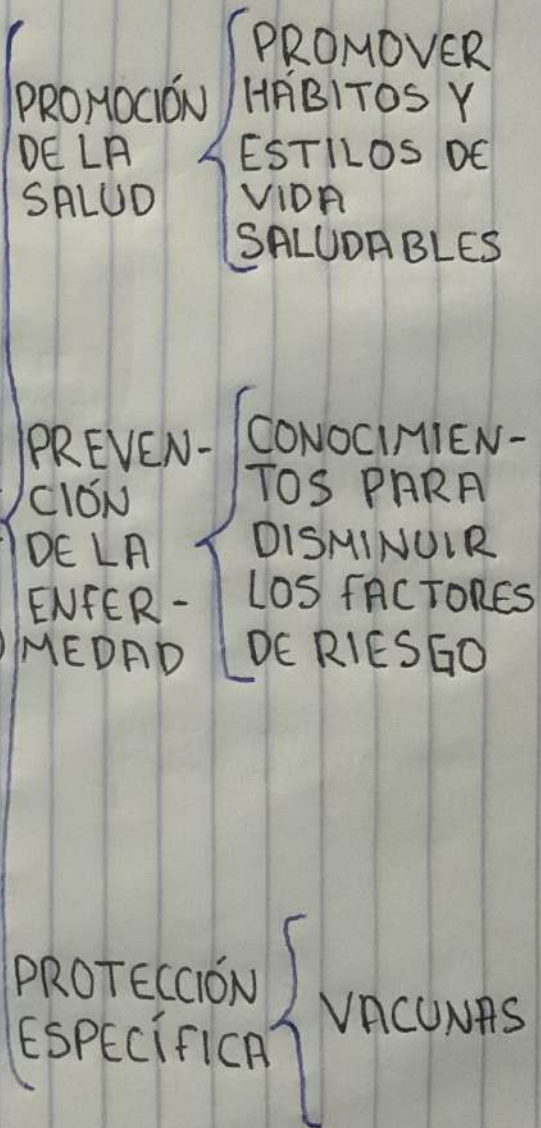 PROMOCIÓN
DE LA
SALUD
PROMOVER
HÁBITOS Y
ESTILOS DE
VIDA
SALUDABLES
PREVEN-
CIÓN
DE LA
ENFER-
MEDAD
CONOCIMIEN-
TOS PARA
DISMINUIR
LOS FACTORES
DE RIESGO
PROTECCIÓN
ESPECÍFICA
VACUNAS